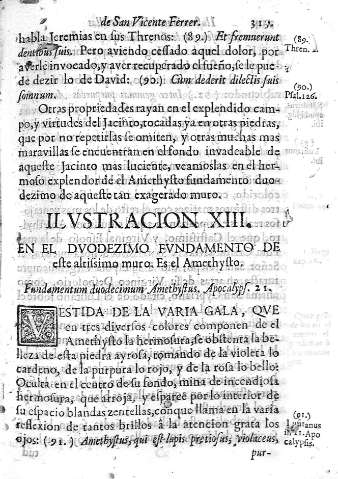 de San Vicente Ferrer. 319.
habla Jeremias en sus Threnos: (89.) Et fremuerunt
dentibus suis. Pero aviendo cessado aquel dolor, por
averle invocado, y aver recuperado el sueño, se le pue-
de dezir lo de David: (90.) Cum dederit dilectis suis
somnum.
(89.
Thren. 2.
(90.)
Psal. 126.
Otras propriedades rayan en el explendido cam-
po, y virtudes del Jacinto, tocadas ya en otras piedras,
que por no repetirlas se omiten, y otras muchas mas
maravillas se encuentran en el fondo invadeable de
aqueste Jacinto mas luciente, veamoslas en el her-
moso explendor de el Amethysto fundamento duo-
dezimo de aqueste tan exagerado muro.
ILVSTRACION XIII.
EN EL DVODEZIMO FVNDAMENTO DE
este altissimo muro. Es el Amethysto.
Fundamentum duodecimum Amethystus. Apocalyps. 21.
VESTIDA DE LA VARIA GALA, QVE
en tres diversos colores componen de el
Amethysto la hermosura, se obstenta la be-
lleza de esta piedra ayrosa, tomando de la violeta lo
cardeno, de la purpura lo rojo, y de la rosa lo bello:
Oculta en el centro de su fondo, mina de incendiosa
hermosura, que arroja, y esparce por lo interior de
su espacio blandas zentellas, conque llama en la varia
reflexion de tantos brillos à la atencion grata los
ojos: (91.) Amethystus, qui est lapis pretiosus, violaceus,
pur-
(91.)
in 21. Apo
calypsis.